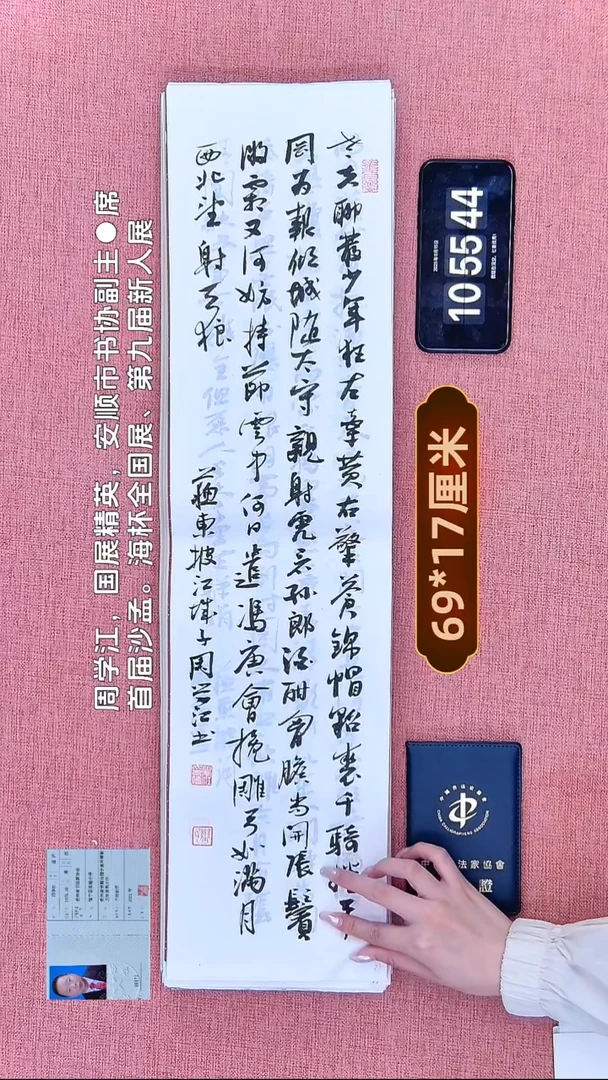 周学江，国展精英，安顺市书协副主●席
首届沙孟。海杯全国展、第九届新人展
老夫聊發少年狂左牽黃右擎蒼錦帽貂裘千騎
岡為報傾城隨太守親射虎看孫郎酒酣胸膽尚開張鬢
微霜又何妨持節雲中何日遣馮唐會挽雕弓如滿月
西北望射天狼
蘇東坡江城子周學江書
10 55 44
69*17厘米
CHINA CALLIGRAPHERS ASSOCIATION
中 法家協會
證